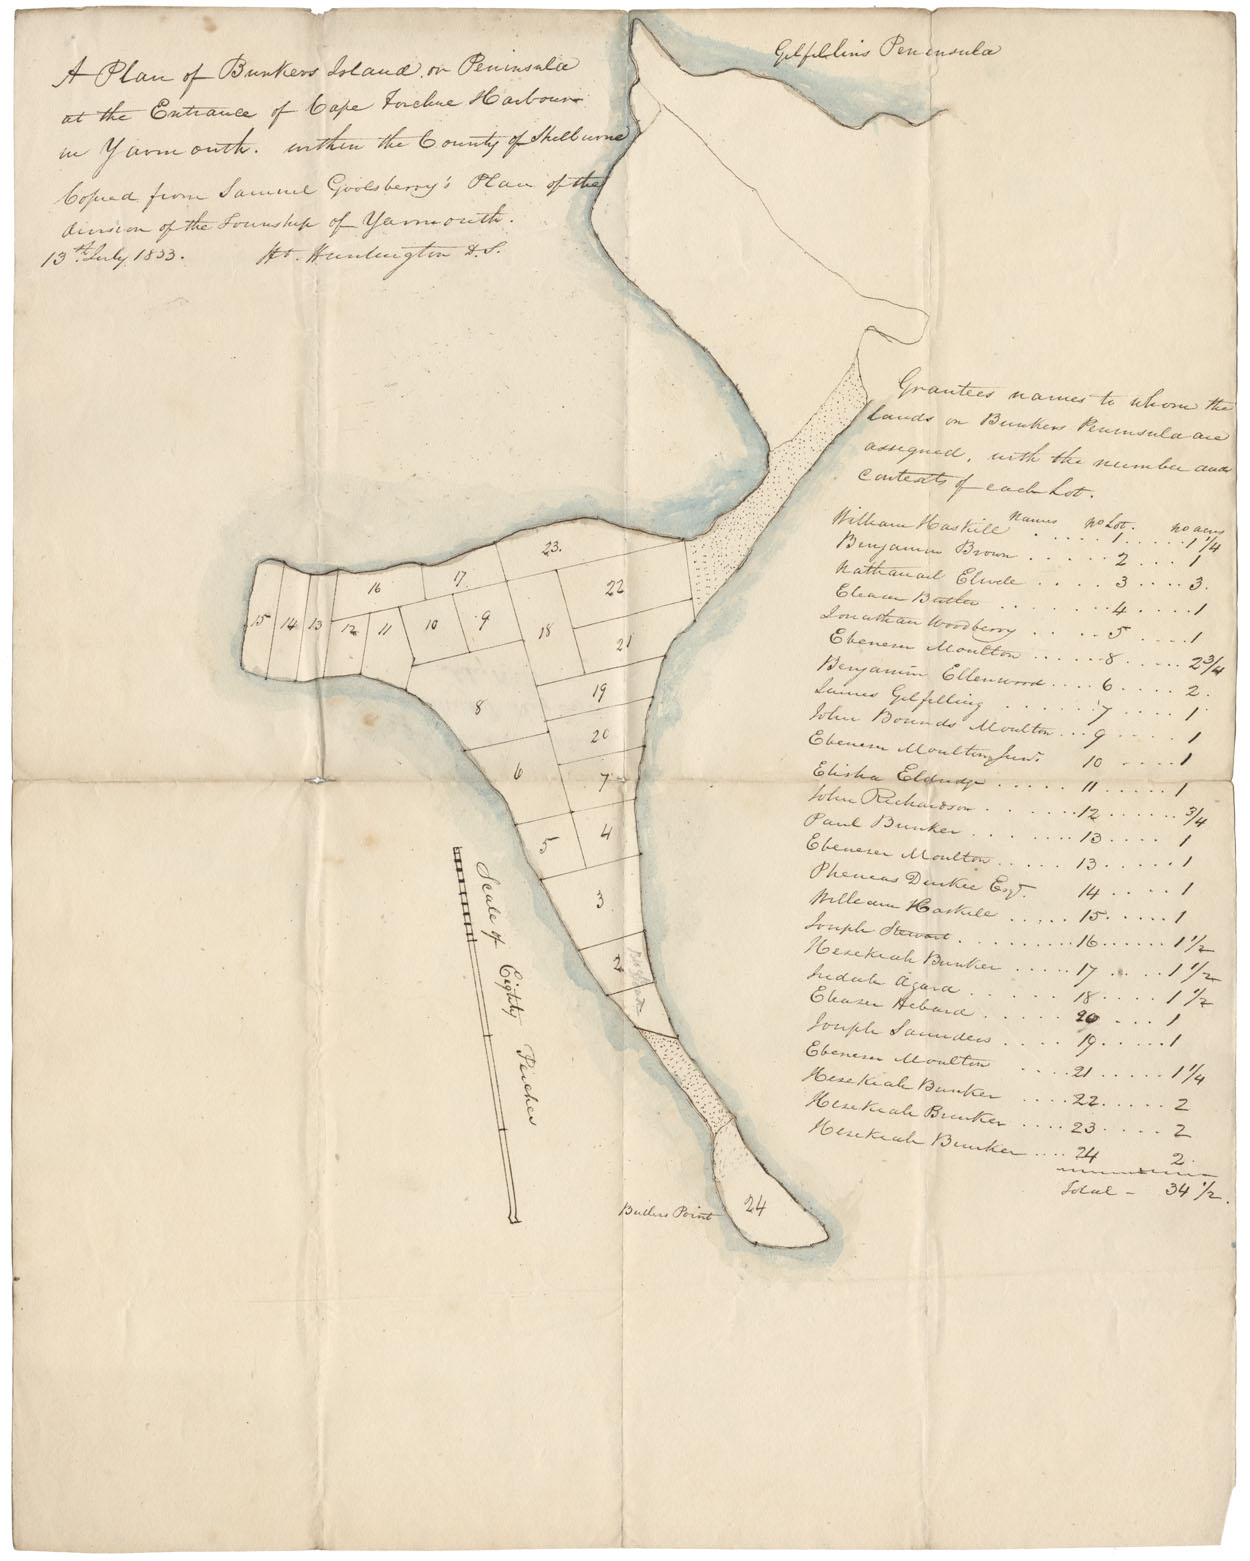 A Plan of Bunkers Island or Peninsula
at the Entrance of Cape Forchue Harbour
in Yarmouth. within the County of Shelburne
Copied from Samuel Goolsberry's Plan of the
division of the Township of Yarmouth.
13th July 1833. Ht. Huntington D.S.
Gilfillins Peninsula
Grantees names to whom the
Lands on Bunkers Peninsula are
assigned, with the number and
Contents of each Lot.
Names no Lot. no acres
William Haskill . . . . . 1 . . . . . 1 1/4
Benjamin Brown . . . . . 2 . . . . 1
Nathanail Elwele . . . . 3 . . . . 3.
Eleam Butler . . . . . . . 4 . . . . 1
Jonathan Woodberry . . . . 5 . . . . 1
Ebenezer Moulton . . . . . 8 . . . . . 2 3/4
Benjamin Ellenwood . . . . 6 . . . . 2.
James Gilfilling . . . . . . 7 . . . . 1
John Bounds Moulton . . . 9 . . . . 1
Ebenezer Moulton Junr. 10 . . . . 1
Elisha Eldridge . . . . . 11 . . . . . 1
John Richardson . . . . . . 12 . . . . . . 3/4
Paul Bunker . . . . . . . . 13 . . . . 1
Ebenezer Moulton . . . . . 13 . . . 1
Pheneas Durkee Esqr. 14 . . . . 1
William Haskill . . . . . 15 . . . . . 1
Joseph Stewart . . . . . . . . . 16 . . . . . . 1 1/2
Hezekiah Bunker . . . . . 17 . . . 1 1/2
Judah Agard . . . . . . 18 . . . . 1 1/2
Eleazer Hebard . . . . . . 20 . . . 1
Joseph Saunders . . . . 19 . . . . . 1
Ebenezer Moulton . . . . 21 . . . . . 1 1/4
Hezekiah Bunker . . . . 22 . . . . . 2
Hezekiah Bunker . . . . 23 . . . . 2
Hezekiah Bunker . . . . 24 2
Total - 34 1/2.
23.
16
17
22
15
14
13
12
11
10
9
18
21
8
19
20
6
7
5
4
3
2
24
Butlers Point
Scale of Eighty Perches